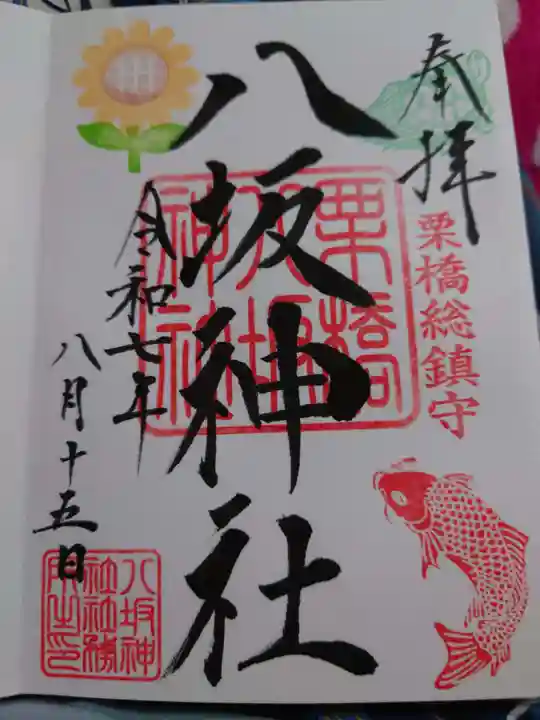 奉拝
栗橋総鎮守
八坂神社
栗橋八坂神社
令和七年
八月十五日
八坂神社社務所之印